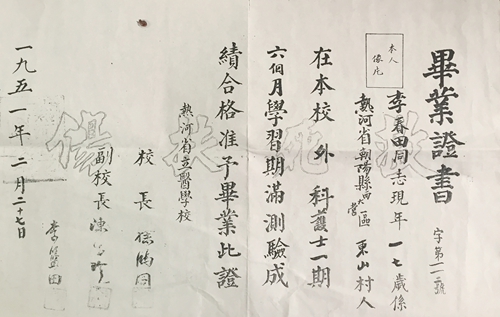 畢業證書
字第二一號
本人
像片
李春田同志現年一七歲係
熱河省朝陽縣四區東山村人
在本校外科護士一期
六個月學習期滿測驗成
績合格准予畢業此證
熱河省立醫學校
校長
副校長陳
一九五一年二月二十七日